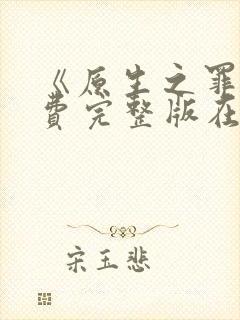 《原生之罪
费完整版在
宋玉悲